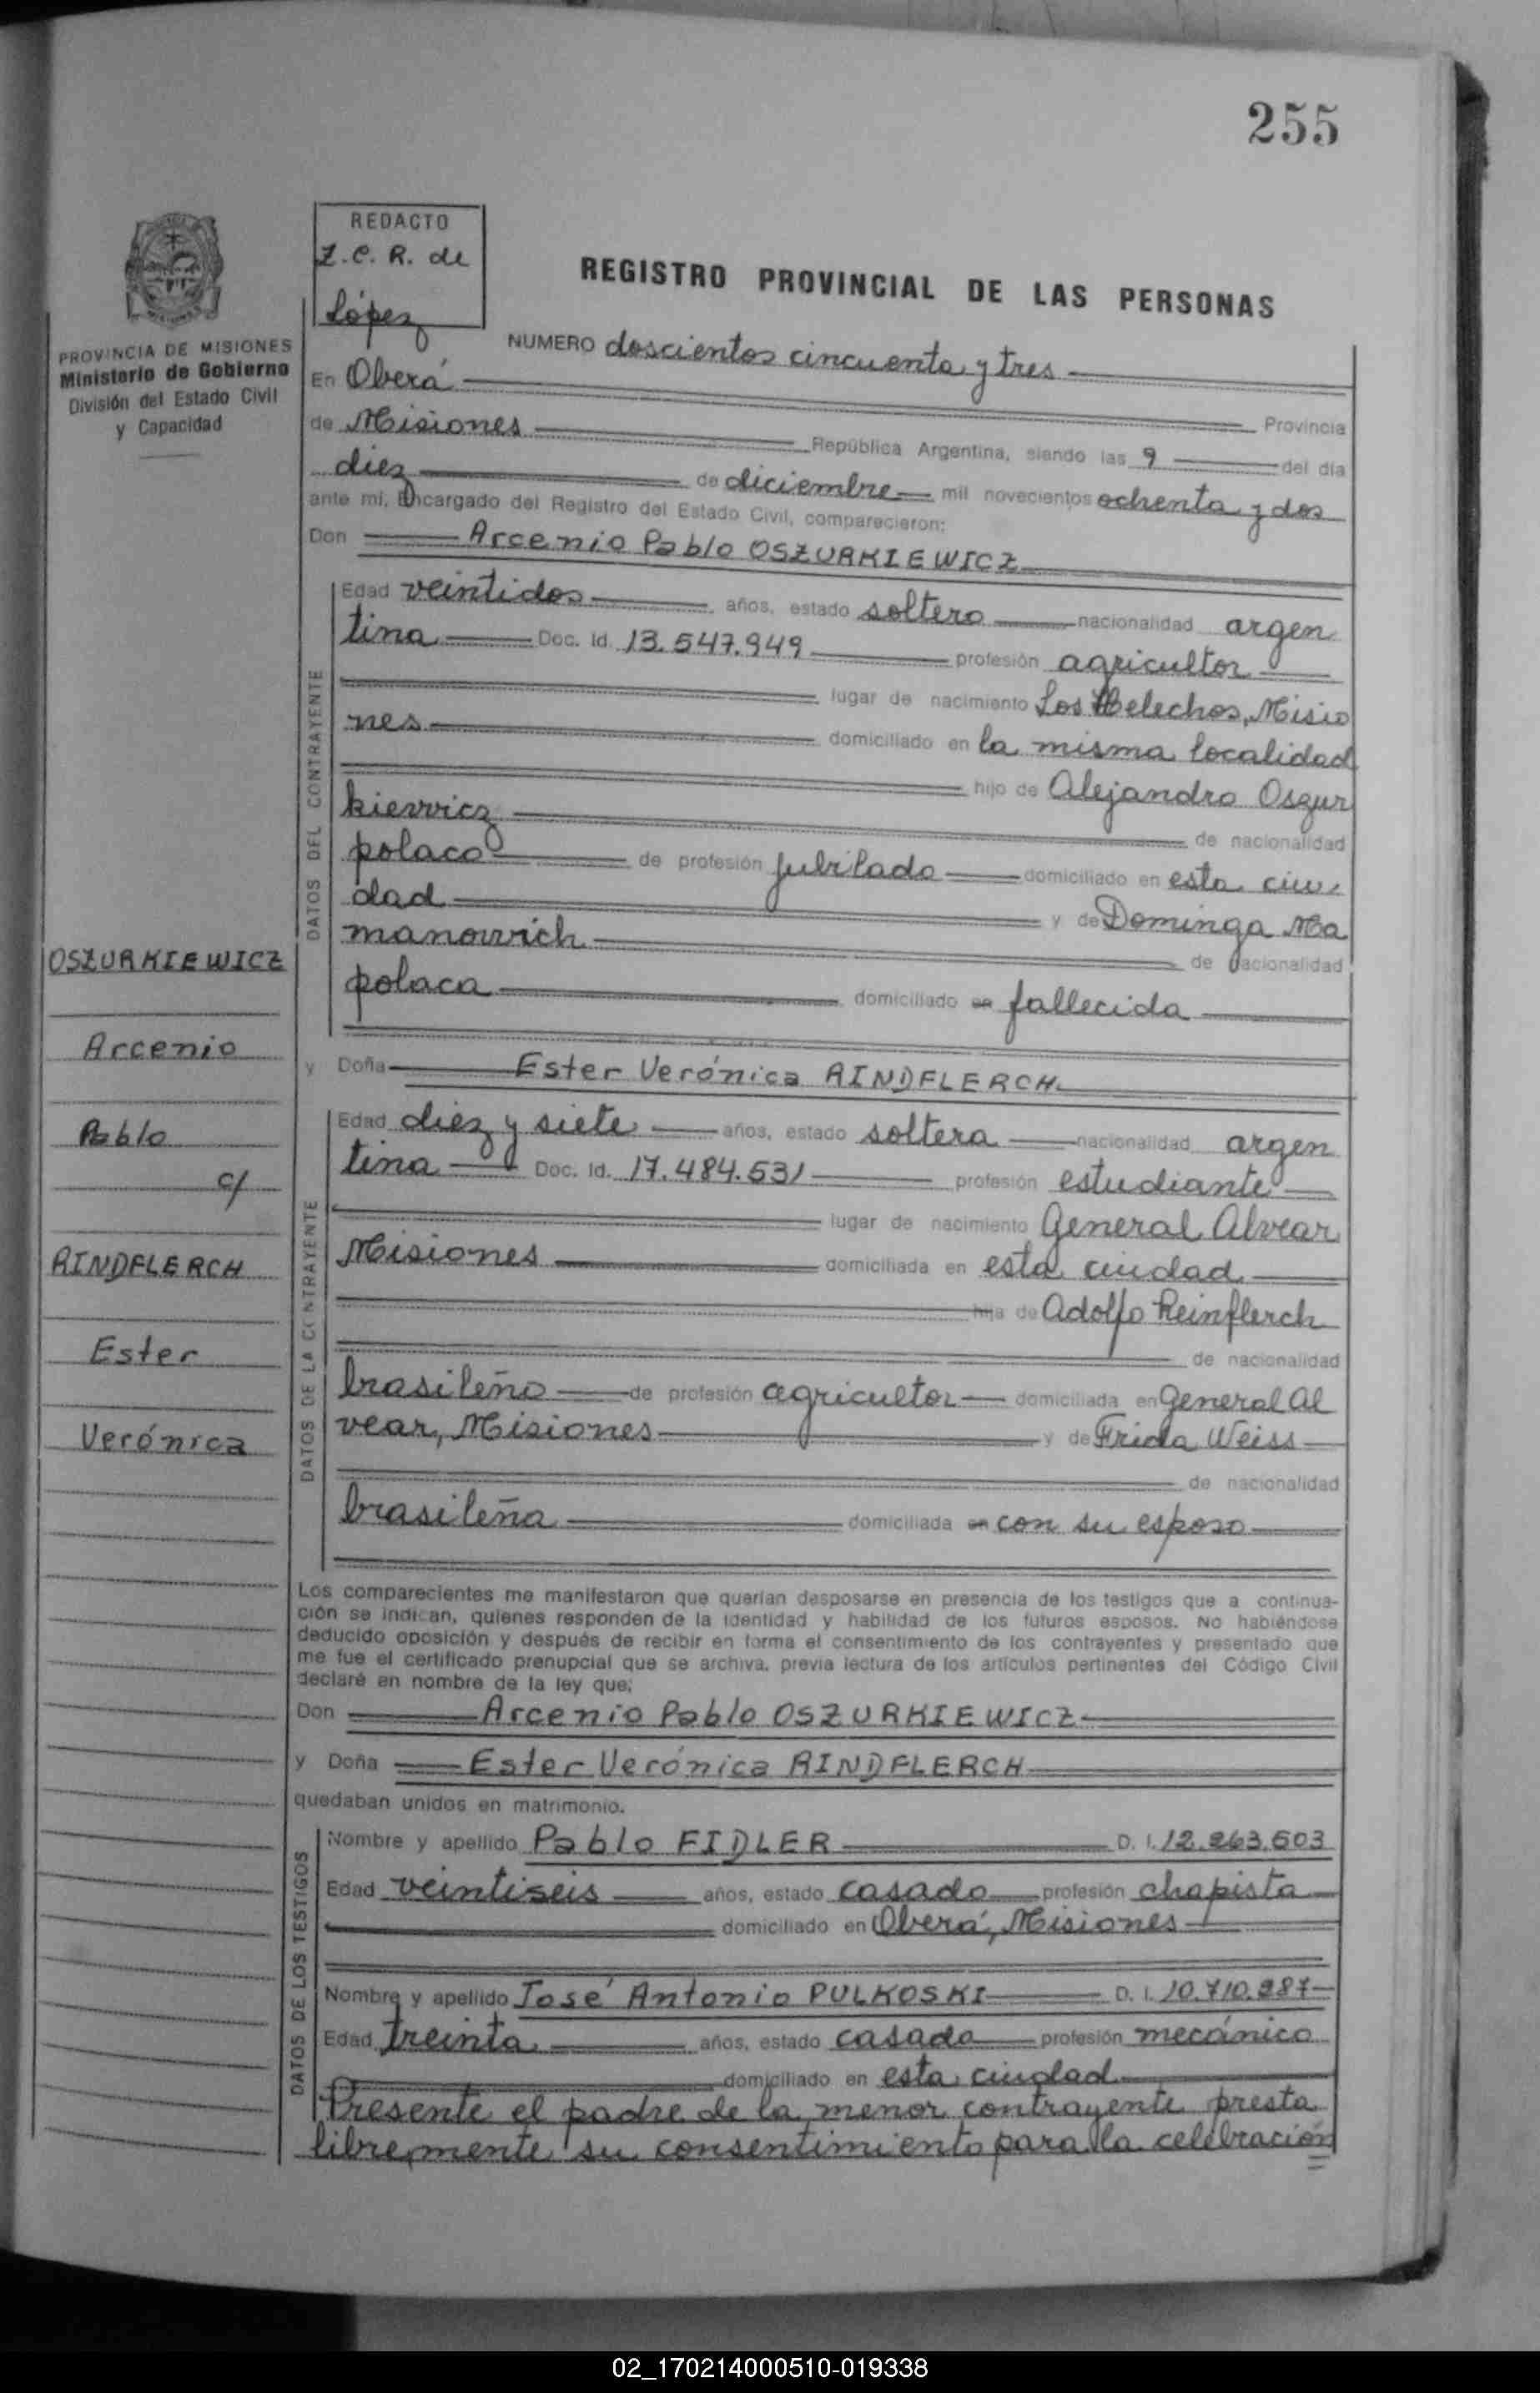 255
REDACTO
Z. C. R. de
López
REGISTRO PROVINCIAL DE LAS PERSONAS
PROVINCIA DE MISIONES
Ministerio de Gobierno
División del Estado Civil
y Capacidad
NUMERO doscientos cincuenta y tres
En Oberá
Provincia
de Misiones República Argentina, siendo las 9 del día
diez de diciembre mil novecientos ochenta y dos
ante mi, Encargado del Registro del Estado Civil, comparecieron:
Don Arcenio Pablo OSZURKIEWICZ
DATOS DEL CONTRAYENTE
Edad veintidos años, estado soltero nacionalidad argen
tina Doc. Id. 13.547.949 profesión agricultor
lugar de nacimiento Los Helechos, Misio
nes domiciliado en la misma localidad
hijo de Alejandro Oszur
kiewicz de nacionalidad
polaco de profesión jubilado domiciliado en esta ciu
dad y de Dominga Ma
manowich de nacionalidad
polaca domiciliado en fallecida
y Doña Ester Verónica RINDFLERCH
DATOS DE LA CONTRAYENTE
Edad diez y siete años, estado soltera nacionalidad argen
tina Doc. Id. 17.484.531 profesión estudiante
lugar de nacimiento General Alvear
Misiones domiciliada en esta ciudad
hija de Adolfo Reinflerch
de nacionalidad
brasileño de profesión agricultor domiciliada en General Al
vear, Misiones y de Frida Weiss
de nacionalidad
brasileña domiciliada en con su esposo
OSZURKIEWICZ
Arcenio
Pablo
c/
RINDFLERCH
Ester
Verónica
Los comparecientes me manifestaron que querían desposarse en presencia de los testigos que a continua-
ción se indican, quienes responden de la identidad y habilidad de los futuros esposos. No habiéndose
deducido oposición y después de recibir en forma el consentimiento de los contrayentes y presentado que
me fue el certificado prenupcial que se archiva, previa lectura de los artículos pertinentes del Código Civil
declaré en nombre de la ley que;
Don Arcenio Pablo OSZURKIEWICZ
y Doña Ester Verónica RINDFLERCH
quedaban unidos en matrimonio.
DATOS DE LOS TESTIGOS
Nombre y apellido Pablo FIDLER D. I. 12.263.603
Edad veintiseis años, estado casado profesión chapista
domiciliado en Oberá, Misiones
Nombre y apellido José Antonio PULKOSKI D. I. 10.710.287
Edad treinta años, estado casado profesión mecánico
domiciliado en esta ciudad
Presente el padre de la menor contrayente presta
libremente su consentimiento para la celebración
02_170214000510-019338